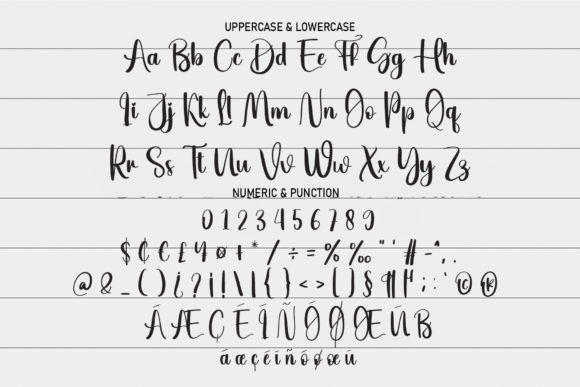 UPPERCASE & LOWERCASE
Aa Bb Cc Dd Ee Ff Gg Hh
Ii Jj Kk Ll Mm Nn Oo Pp Qq
Rr Ss Tt Uu Vv Ww Xx Yy Zz
NUMERIC & PUNCTION
0 1 2 3 4 5 6 7 8 9
$ ¢ € £ ¥ ø + * / ÷ = % ‰ " ' # - ^ , .
@ & _ ( ) ¿ ? ¡ ! \ | { } < > [ ] § ¶ ; : ` © ®
Á Æ Ç É Í Ñ Ó Ø Œ Ú ß
á æ ç é í ñ ó ø œ ú